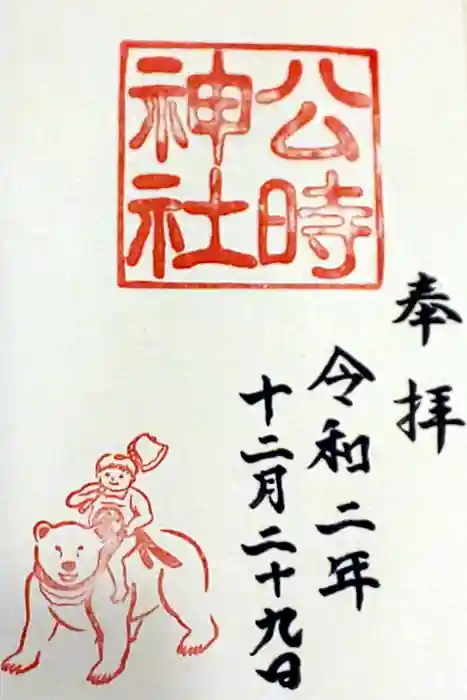 公時
神社
奉拝
令和二年
十二月二十九日